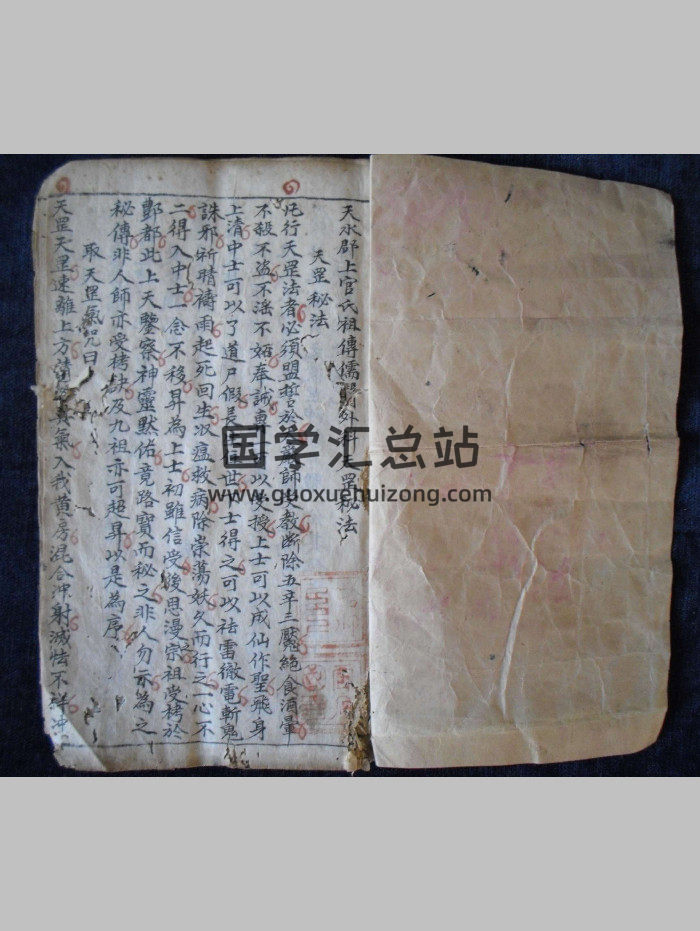 天水郡上官氏祖傳儒醫外科天罡秘法
天罡秘法
凡行天罡法者必須盟誓於師教斷除五辛三魘絕食酒暈
不殺不盗不淫不妬奉誠可以受授上士可以成仙作聖飛身
上清中士可以了道尸假世下士得之可以祛雷徹電斬鬼
誅邪祈晴禱雨起死回生収瘟救病除祟蕩妖久而行之一心不
二得入中士一念不移昇為上士初雖信受後思漫宗祖受拷於
酆都此上天鑒察神靈默佑竟路寳而秘之非人勿示為之
秘傳非人師亦受拷抉及九祖亦可超昇以是為序
取天罡氣咒曰
天罡天罡速離上方氣入我黄房混合沖射滅怯不祥沖
国学汇总站
www.guoxuehuizong.com